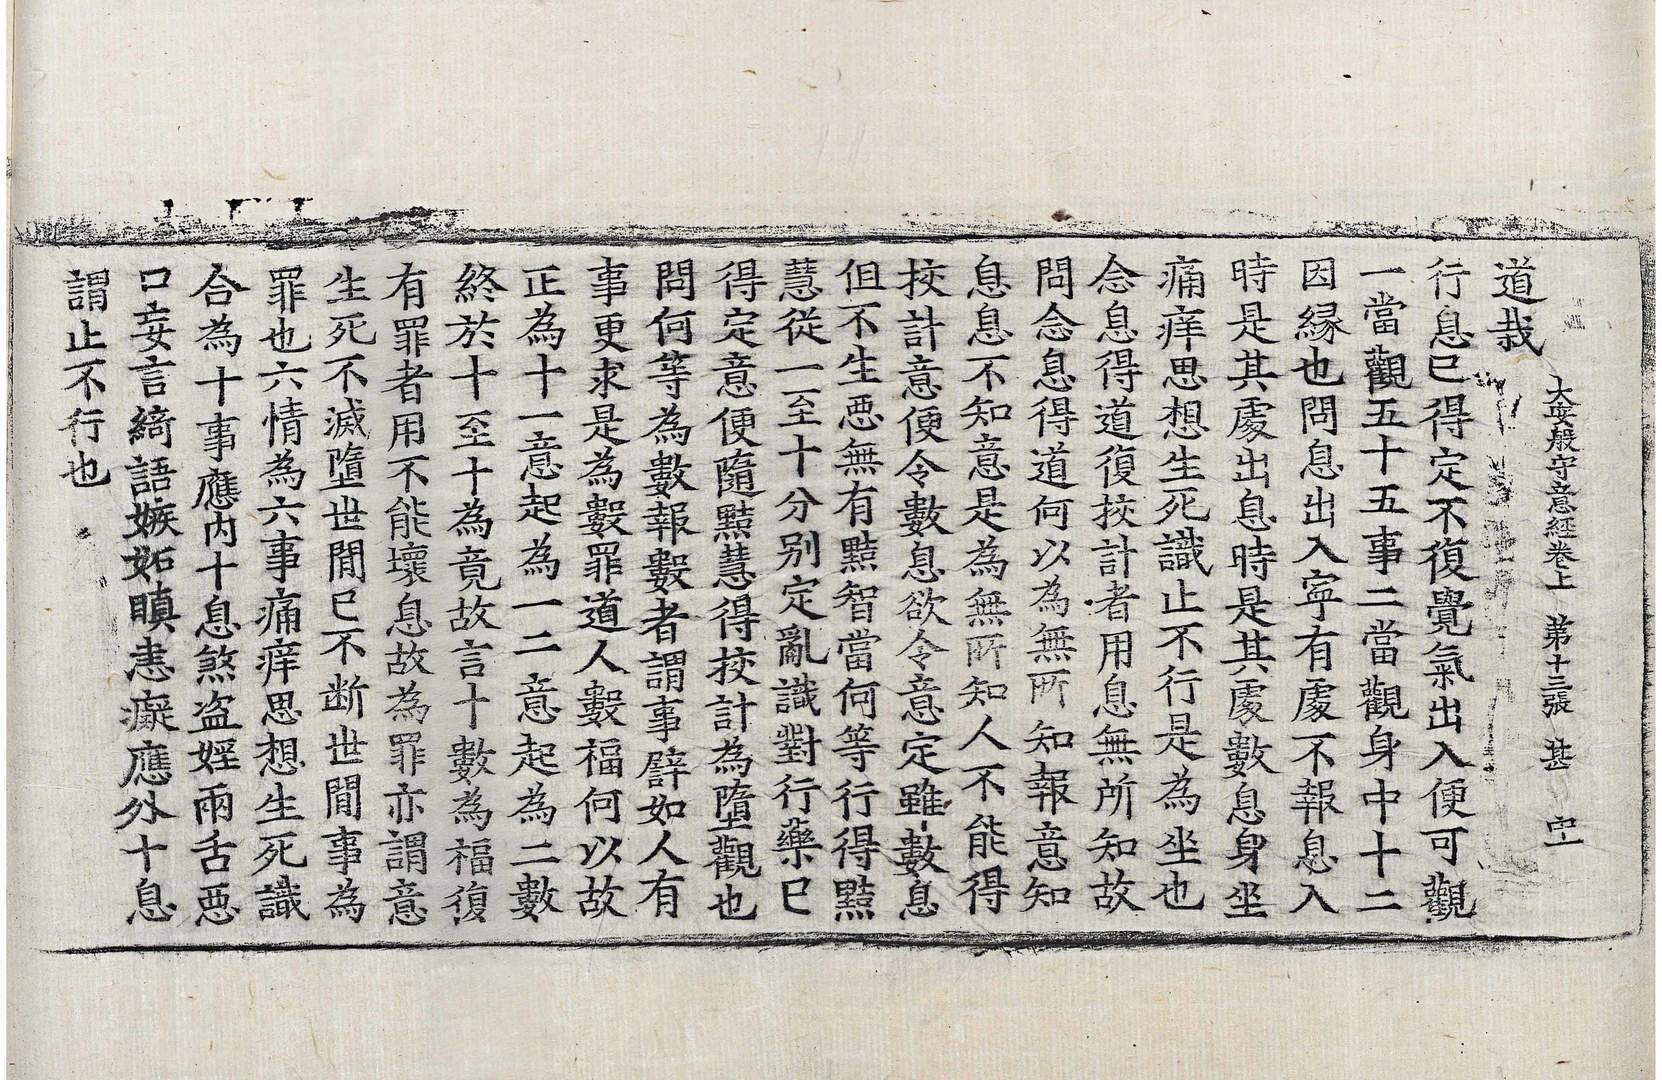 大安般守意經卷上 第十三張 甚
道哉
行息已得定不復覺氣出入便可觀
一當觀五十五事二當觀身中十二
因縁也問息出入寧有處不報息入
時是其處出息時是其處數息身坐
痛痒思想生死識止不行是為坐也
念息得道復挍計者用息無所知故
問念息得道何以為無所知報意知
息息不知意是為無所知人不能得
挍計意便令數息欲令意定雖數息
但不生惡無有黠智當何等行得黠
慧從一至十分別定亂識對行藥已
得定意便隨黠慧得挍計為墮觀也
問何等為數報數者謂事譬如人有
事更求是為數罪道人數福何以故
正為十一意起為一二意起為二數
終於十至十為竟故言十數為福復
有罪者用不能壞息故為罪亦謂意
生死不滅墮世間已不断世間事為
罪也六情為六事痛痒思想生死識
合為十事應内十息煞盗婬兩舌惡
口妄言綺語嫉妬瞋恚癡應外十息
謂止不行也